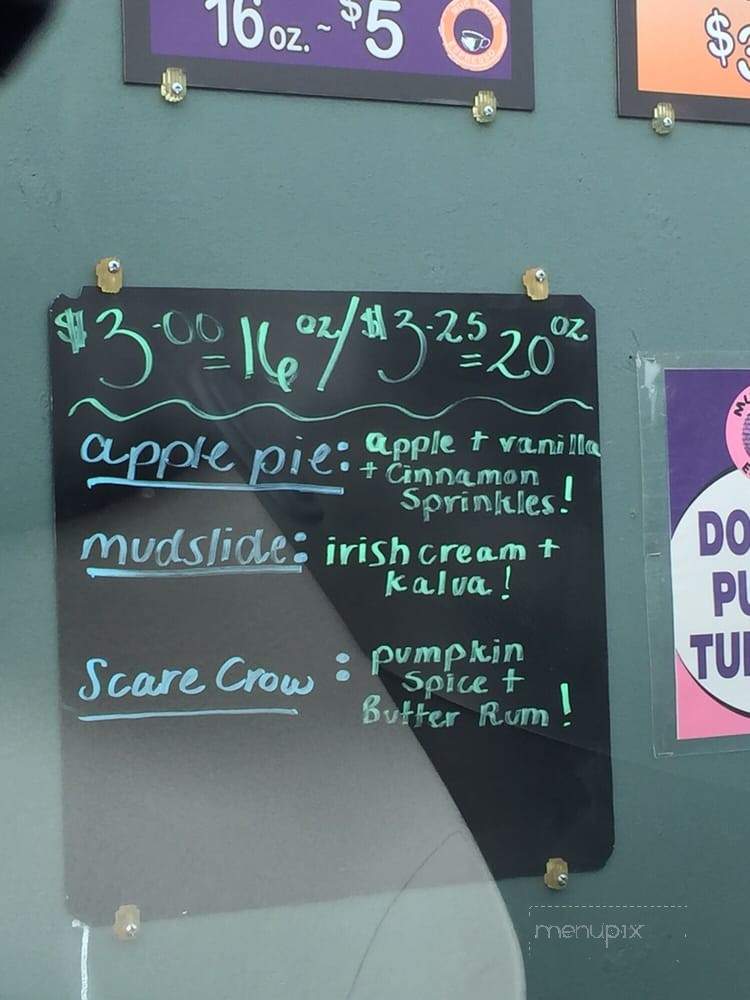 16 oz. ~ $5
$3
$3.00 = 16 oz / $3.25 = 20 oz
apple pie: apple + vanilla
+ Cinnamon
Sprinkles!
mudslide: irish cream +
kalua!
Scare Crow: pumpkin
Spice +
Butter Rum!
DO
PU
TU
menupix